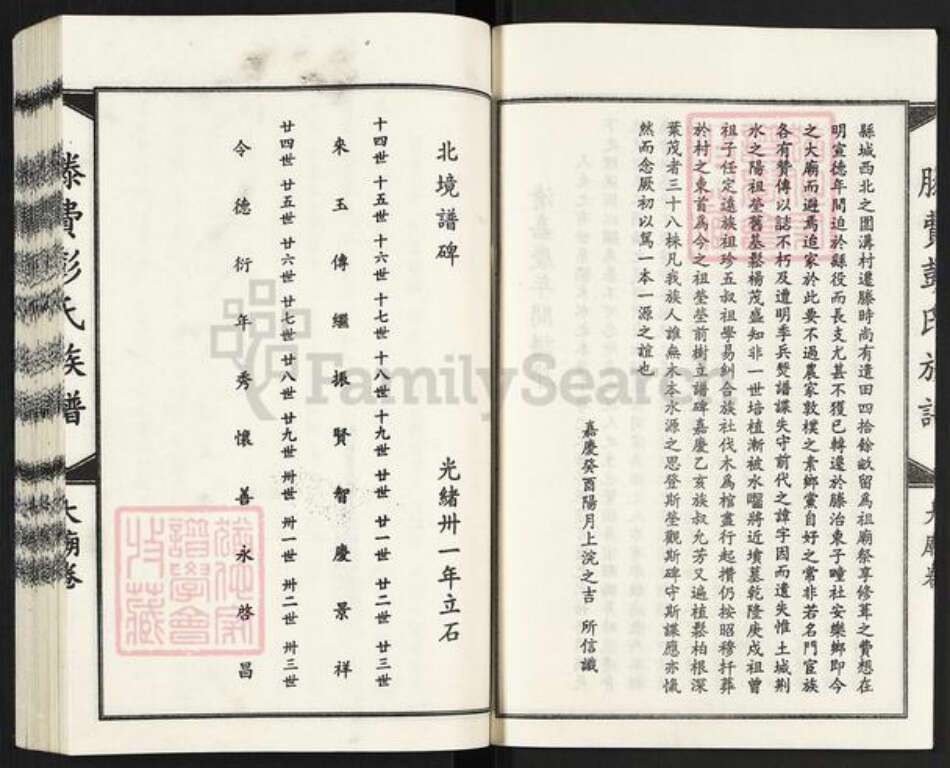 縣城西北之圈溝村遷滕時尚有遺田四拾餘畝留爲祖廟祭享修葺之費想在
明宣德年間迫於縣役而長支尤甚不獲已轉遷於滕治東子疃社安樂鄉即今
之大廟而避焉迨家於此要不過農家敦樸之素鄉黨自好之常非若名門宦族
各有贊傳以誌不朽及遭明季兵燹譜諜失守前代之諱字因而遺失惟土城荆
水之陽祖塋舊基鬆楊茂盛知非一世培植漸被水囓將近墳墓乾隆庚戍祖曾
祖子任定遠族祖珍五叔祖學易糾合族社伐木爲棺盡行起攢仍按昭穆扦葬
於村之東首爲今之祖塋塋前樹立譜碑嘉慶乙亥族叔允芳又遍植鬆柏根深
葉茂者三十八株凡我族人誰無木本水源之思登斯塋觀斯碑守斯諜應亦愾
然而念厥初以篤一本一源之誼也
嘉慶癸酉陽月上浣之吉 所信識
北境譜碑 光緒卅一年立石
十四世 十五世 十六世 十七世 十八世 十九世 廿世 廿一世 廿二世 廿三世
來 玉 傳 繼 振 賢 智 慶 景 祥
廿四世 廿五世 廿六世 廿七世 廿八世 廿九世 卅世 卅一世 卅二世 卅三世
令 德 衍 年 秀 懷 善 永 啓 昌
滕費彭氏族譜 大廟卷
滕費彭氏族譜 大廟卷
FamilySearch